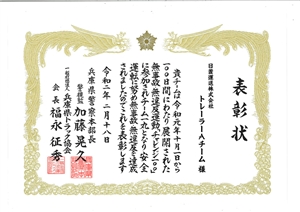 表彰状
日置運送株式会社
トレーラーAチーム 様
貴チームは令和元年十月一日から
一〇〇日間にわたり展開された
無事故・無違反運動「チャレンジ一〇〇」
に参加されチーム一丸となり安全
運転に努め無事故・無違反を達成
されましたのでこれを表彰します
令和二年二月十八日
兵庫県警察本部長
警視監 加藤晃久
一般社団法人 兵庫県トラック協会
会長 福永征秀